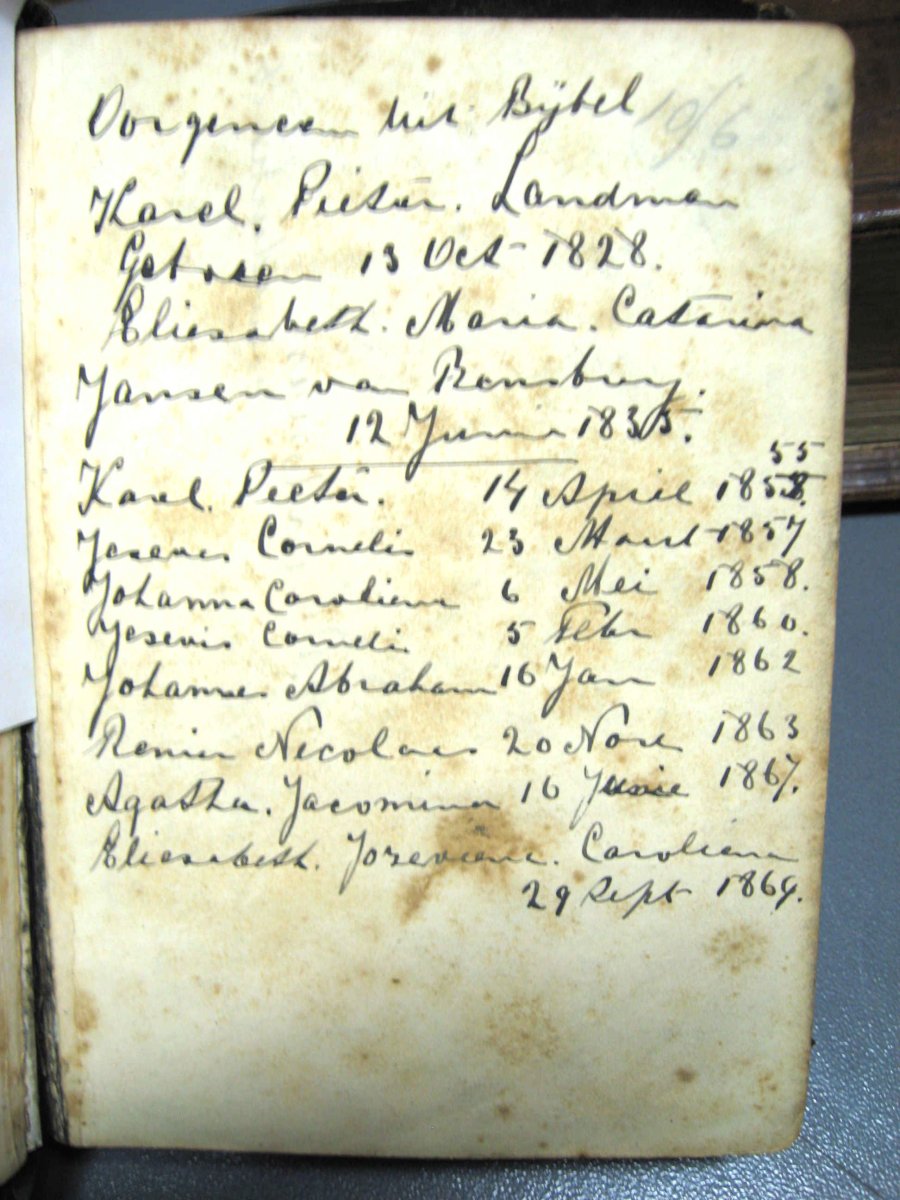 Oorgeneem uit Bÿbel 10/6
Karel. Pieter. Landman
Geboren 13 Oct 1828.
Eliesabeth. Maria. Catarina
Jansen van Rensburg.
12 Junie 1835.
55
Karel. Pieter. 14 April 1858.
Josevis Cornelis 23 Maart 1857
Johanna Caroliena 6 Mei 1858.
Josevis Cornelis 5 Febr 1860.
Johannes Abraham 16 Jan 1862
Renier Nicolaas 20 Nove 1863
Agatha. Jacomina 16 Junie 1867.
Eliesabeth. Joseviena. Caroliena
29 Sept 1869.